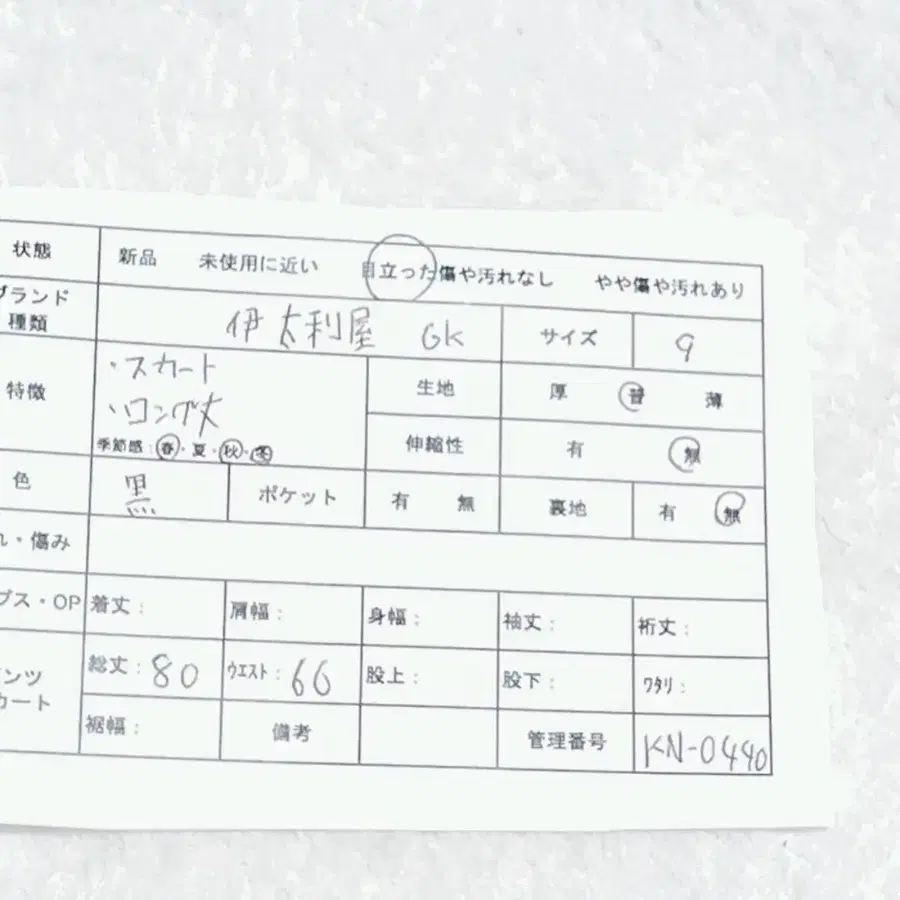 状態 新品 未使用に近い 目立った傷や汚れなし やや傷や汚れあり
ブランド
種類 伊太利屋 GK サイズ 9
特徴 ・スカート
・ロング丈
季節感：春・夏・秋・冬
生地 厚 普 薄
伸縮性 有 無
色 黒 ポケット 有 無 裏地 有 無
れ・傷み
プス・OP 着丈： 肩幅： 身幅： 袖丈： 裄丈：
ンツ
カート 総丈：80 ウエスト：66 股上： 股下： ワタリ：
裾幅： 備考 管理番号 KN-0440